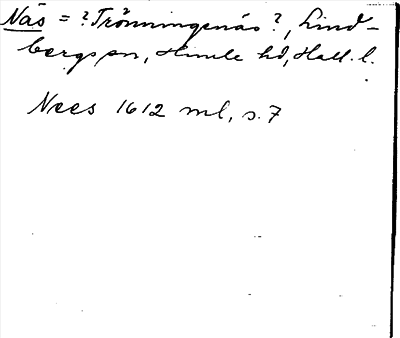 Näs = ? Trönningenäs ?, Lind-
bergs sn, Himle hd, Hall. l.
Nees 1612 ml, s. 7